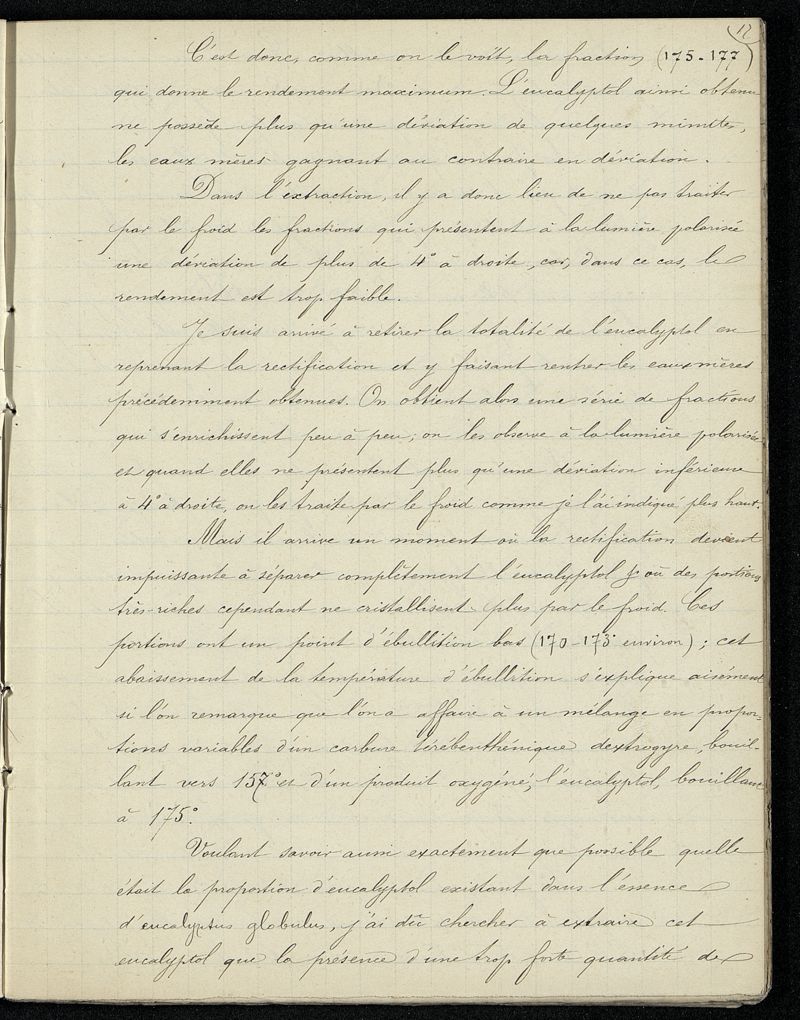 12
C'est donc, comme on le voit, la fraction (175-177)
qui donne le rendement maximum. L'eucalyptol ainsi obtenu
ne possède plus qu'une déviation de quelques minutes,
les eaux mères gagnant au contraire en déviation.
Dans l'extraction, il y a donc lieu de ne pas traiter
par le froid les fractions qui présentent à la lumière polarisée
une déviation de plus de 4° à droite, car, dans ce cas, le
rendement est trop faible.
Je suis arrivé à retirer la totalité de l'eucalyptol en
reprenant la rectification et y faisant rentrer les eaux mères
précédemment obtenues. On obtient alors une série de fractions
qui s'enrichissent peu à peu; on les observe à la lumière polarisée
et quand elles ne présentent plus qu'une déviation inférieure
à 4° à droite, on les traite par le froid comme je l'ai indiqué plus haut.
Mais il arrive un moment où la rectification devient
impuissante à séparer complètement l'eucalyptol & où des portions
très-riches cependant ne cristallisent plus par le froid. Ces
portions ont un point d'ébullition bas (170-173° environ); cet
abaissement de la température d'ébullition s'explique aisément
si l'on remarque que l'on a affaire à un mélange en propor-
tions variables d'un carbure térébenthénique dextrogyre, bouil-
lant vers 157° et d'un produit oxygéné, l'eucalyptol, bouillant
à 175°.
Voulant savoir aussi exactement que possible quelle
était la proportion d'eucalyptol existant dans l'essence
d'eucalyptus globulus, j'ai dû chercher à extraire cet
eucalyptol que la présence d'une trop forte quantité de